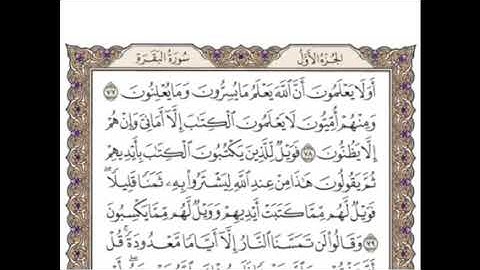 الجزء الأول
سورة البقرة
أولا يعلمون أن الله يعلم ما يسرون وما يعلنون ٧٧
ومنهم أميون لا يعلمون الكتب إلا أماني وإن هم
إلا يظنون ٧٨ فويل للذين يكتبون الكتب بأيديهم
ثم يقولون هذا من عند الله ليشتروا به ثمنا قليلا
فويل لهم مما كتبت أيديهم وويل لهم مما يكسبون
٧٩ وقالوا لن تمسنا النار إلا أياما معدودة قل